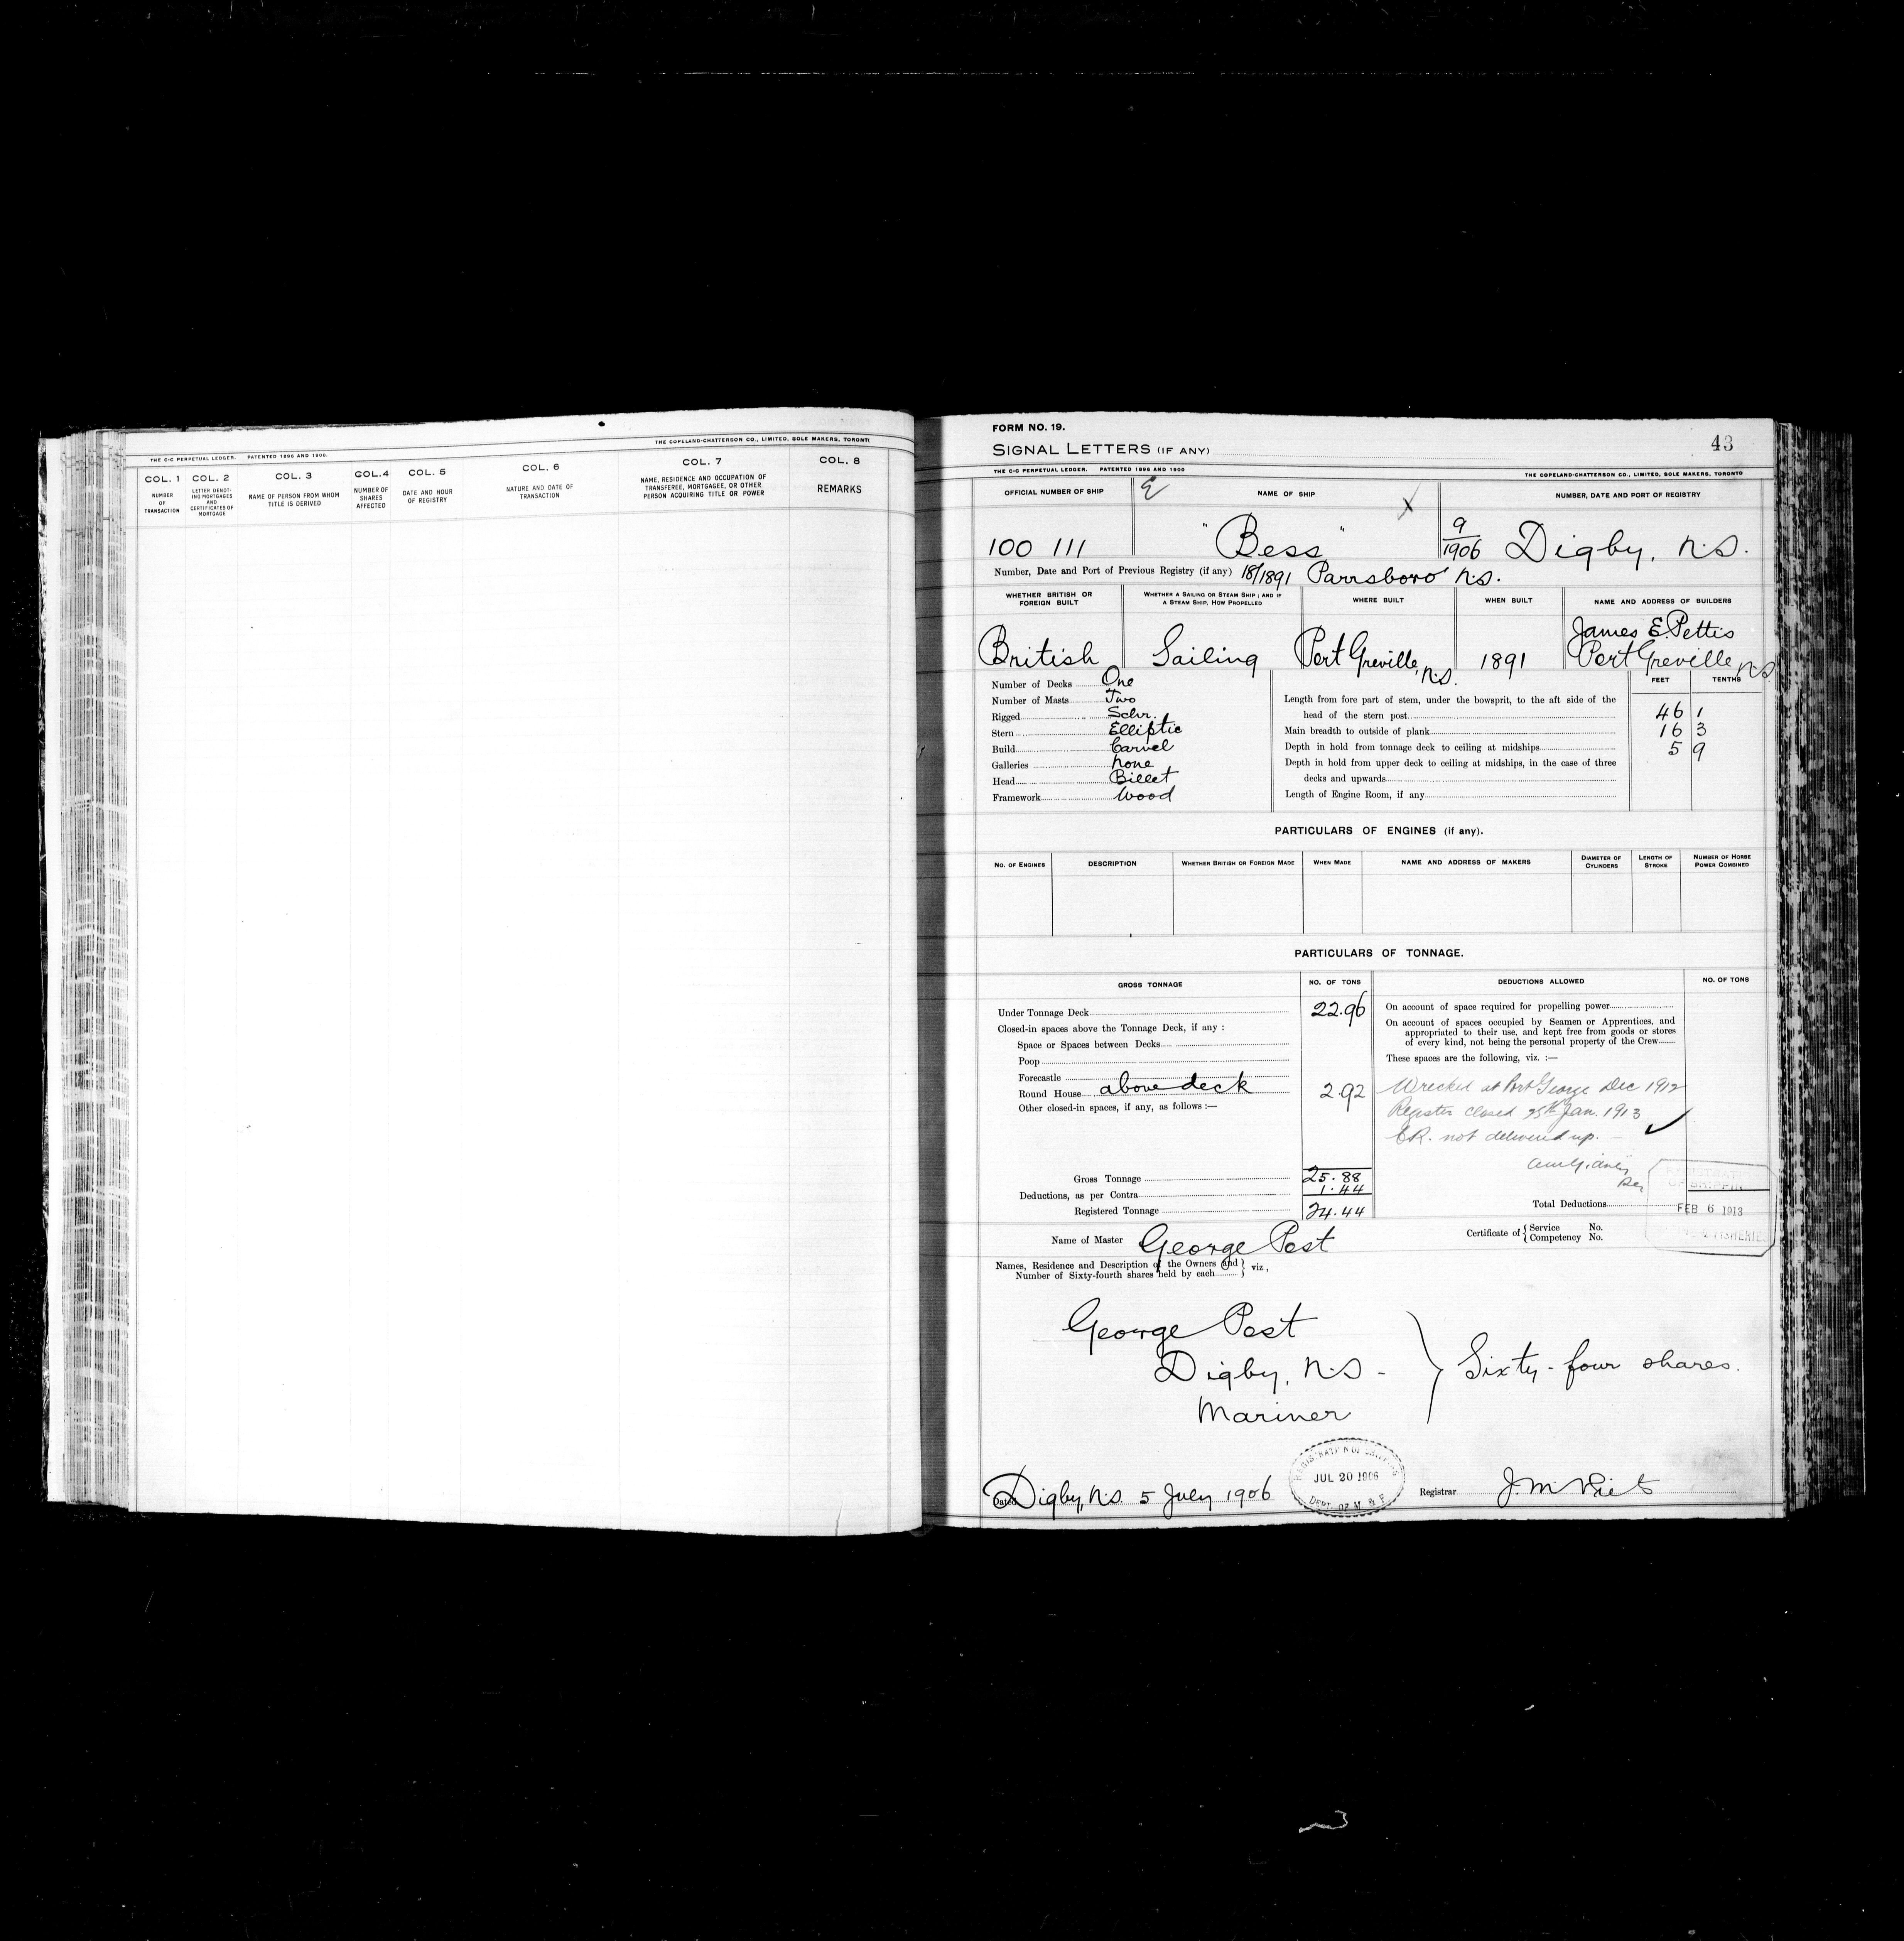 THE C-C PERPETUAL LEDGER. PATENTED 1896 AND 1900. THE COPELAND-CHATTERSON CO., LIMITED, SOLE MAKERS, TORONTO
COL. 1 COL. 2 COL. 3 COL. 4 COL. 5 COL. 6 COL. 7 COL. 8
NUMBER OF TRANSACTION
LETTER DENOTING MORTGAGES AND CERTIFICATES OF MORTGAGE
NAME OF PERSON FROM WHOM TITLE IS DERIVED
NUMBER OF SHARES AFFECTED
DATE AND HOUR OF REGISTRY
NATURE AND DATE OF TRANSACTION
NAME, RESIDENCE AND OCCUPATION OF TRANSFEREE, MORTGAGEE, OR OTHER PERSON ACQUIRING TITLE OR POWER
REMARKS
FORM NO. 19.
43
SIGNAL LETTERS (IF ANY)
THE C-C PERPETUAL LEDGER. PATENTED 1896 AND 1900 THE COPELAND-CHATTERSON CO., LIMITED, SOLE MAKERS, TORONTO
OFFICIAL NUMBER OF SHIP NAME OF SHIP NUMBER, DATE AND PORT OF REGISTRY
100 111 "Bess" 9/1906 Digby, N.S.
Number, Date and Port of Previous Registry (if any) 18/1891 Parrsboro' N.S.
WHETHER BRITISH OR FOREIGN BUILT
WHETHER A SAILING OR STEAM SHIP; AND IF A STEAM SHIP, HOW PROPELLED
WHERE BUILT
WHEN BUILT
NAME AND ADDRESS OF BUILDERS
British Sailing Port Greville, N.S. 1891 James E. Pettis
Port Greville N.S.
FEET TENTHS
Number of Decks One
Number of Masts Two
Rigged Schr.
Stern Elliptic
Build Carvel
Galleries None
Head Billet
Framework Wood
Length from fore part of stem, under the bowsprit, to the aft side of the
head of the stern post 46 1
Main breadth to outside of plank 16 3
Depth in hold from tonnage deck to ceiling at midships 5 9
Depth in hold from upper deck to ceiling at midships, in the case of three
decks and upwards
Length of Engine Room, if any
PARTICULARS OF ENGINES (if any).
NO. OF ENGINES DESCRIPTION WHETHER BRITISH OR FOREIGN MADE WHEN MADE NAME AND ADDRESS OF MAKERS DIAMETER OF CYLINDERS LENGTH OF STROKE NUMBER OF HORSE POWER COMBINED
PARTICULARS OF TONNAGE.
GROSS TONNAGE NO. OF TONS DEDUCTIONS ALLOWED NO. OF TONS
Under Tonnage Deck 22.96
Closed-in spaces above the Tonnage Deck, if any :
Space or Spaces between Decks
Poop
Forecastle
Round House above deck 2.92
Other closed-in spaces, if any, as follows :—
Gross Tonnage 25.88
Deductions, as per Contra 1.44
Registered Tonnage 24.44
On account of space required for propelling power
On account of spaces occupied by Seamen or Apprentices, and
appropriated to their use, and kept free from goods or stores
of every kind, not being the personal property of the Crew
These spaces are the following, viz. :—
Wrecked at Port George Dec 1912
Register closed 25th Jan. 1913
C.R. not delivered up.
Total Deductions
FEB 6 1913
Name of Master George Post
Certificate of { Service No.
Competency No.
Names, Residence and Description of the Owners and
Number of Sixty-fourth shares held by each } viz,
George Post
Digby, N.S. -
Mariner
Sixty-four shares.
Dated Digby, N.S. 5 July 1906
REGISTRATION OF SHIPPING
JUL 20 1906
DEPT. OF M & F
Registrar